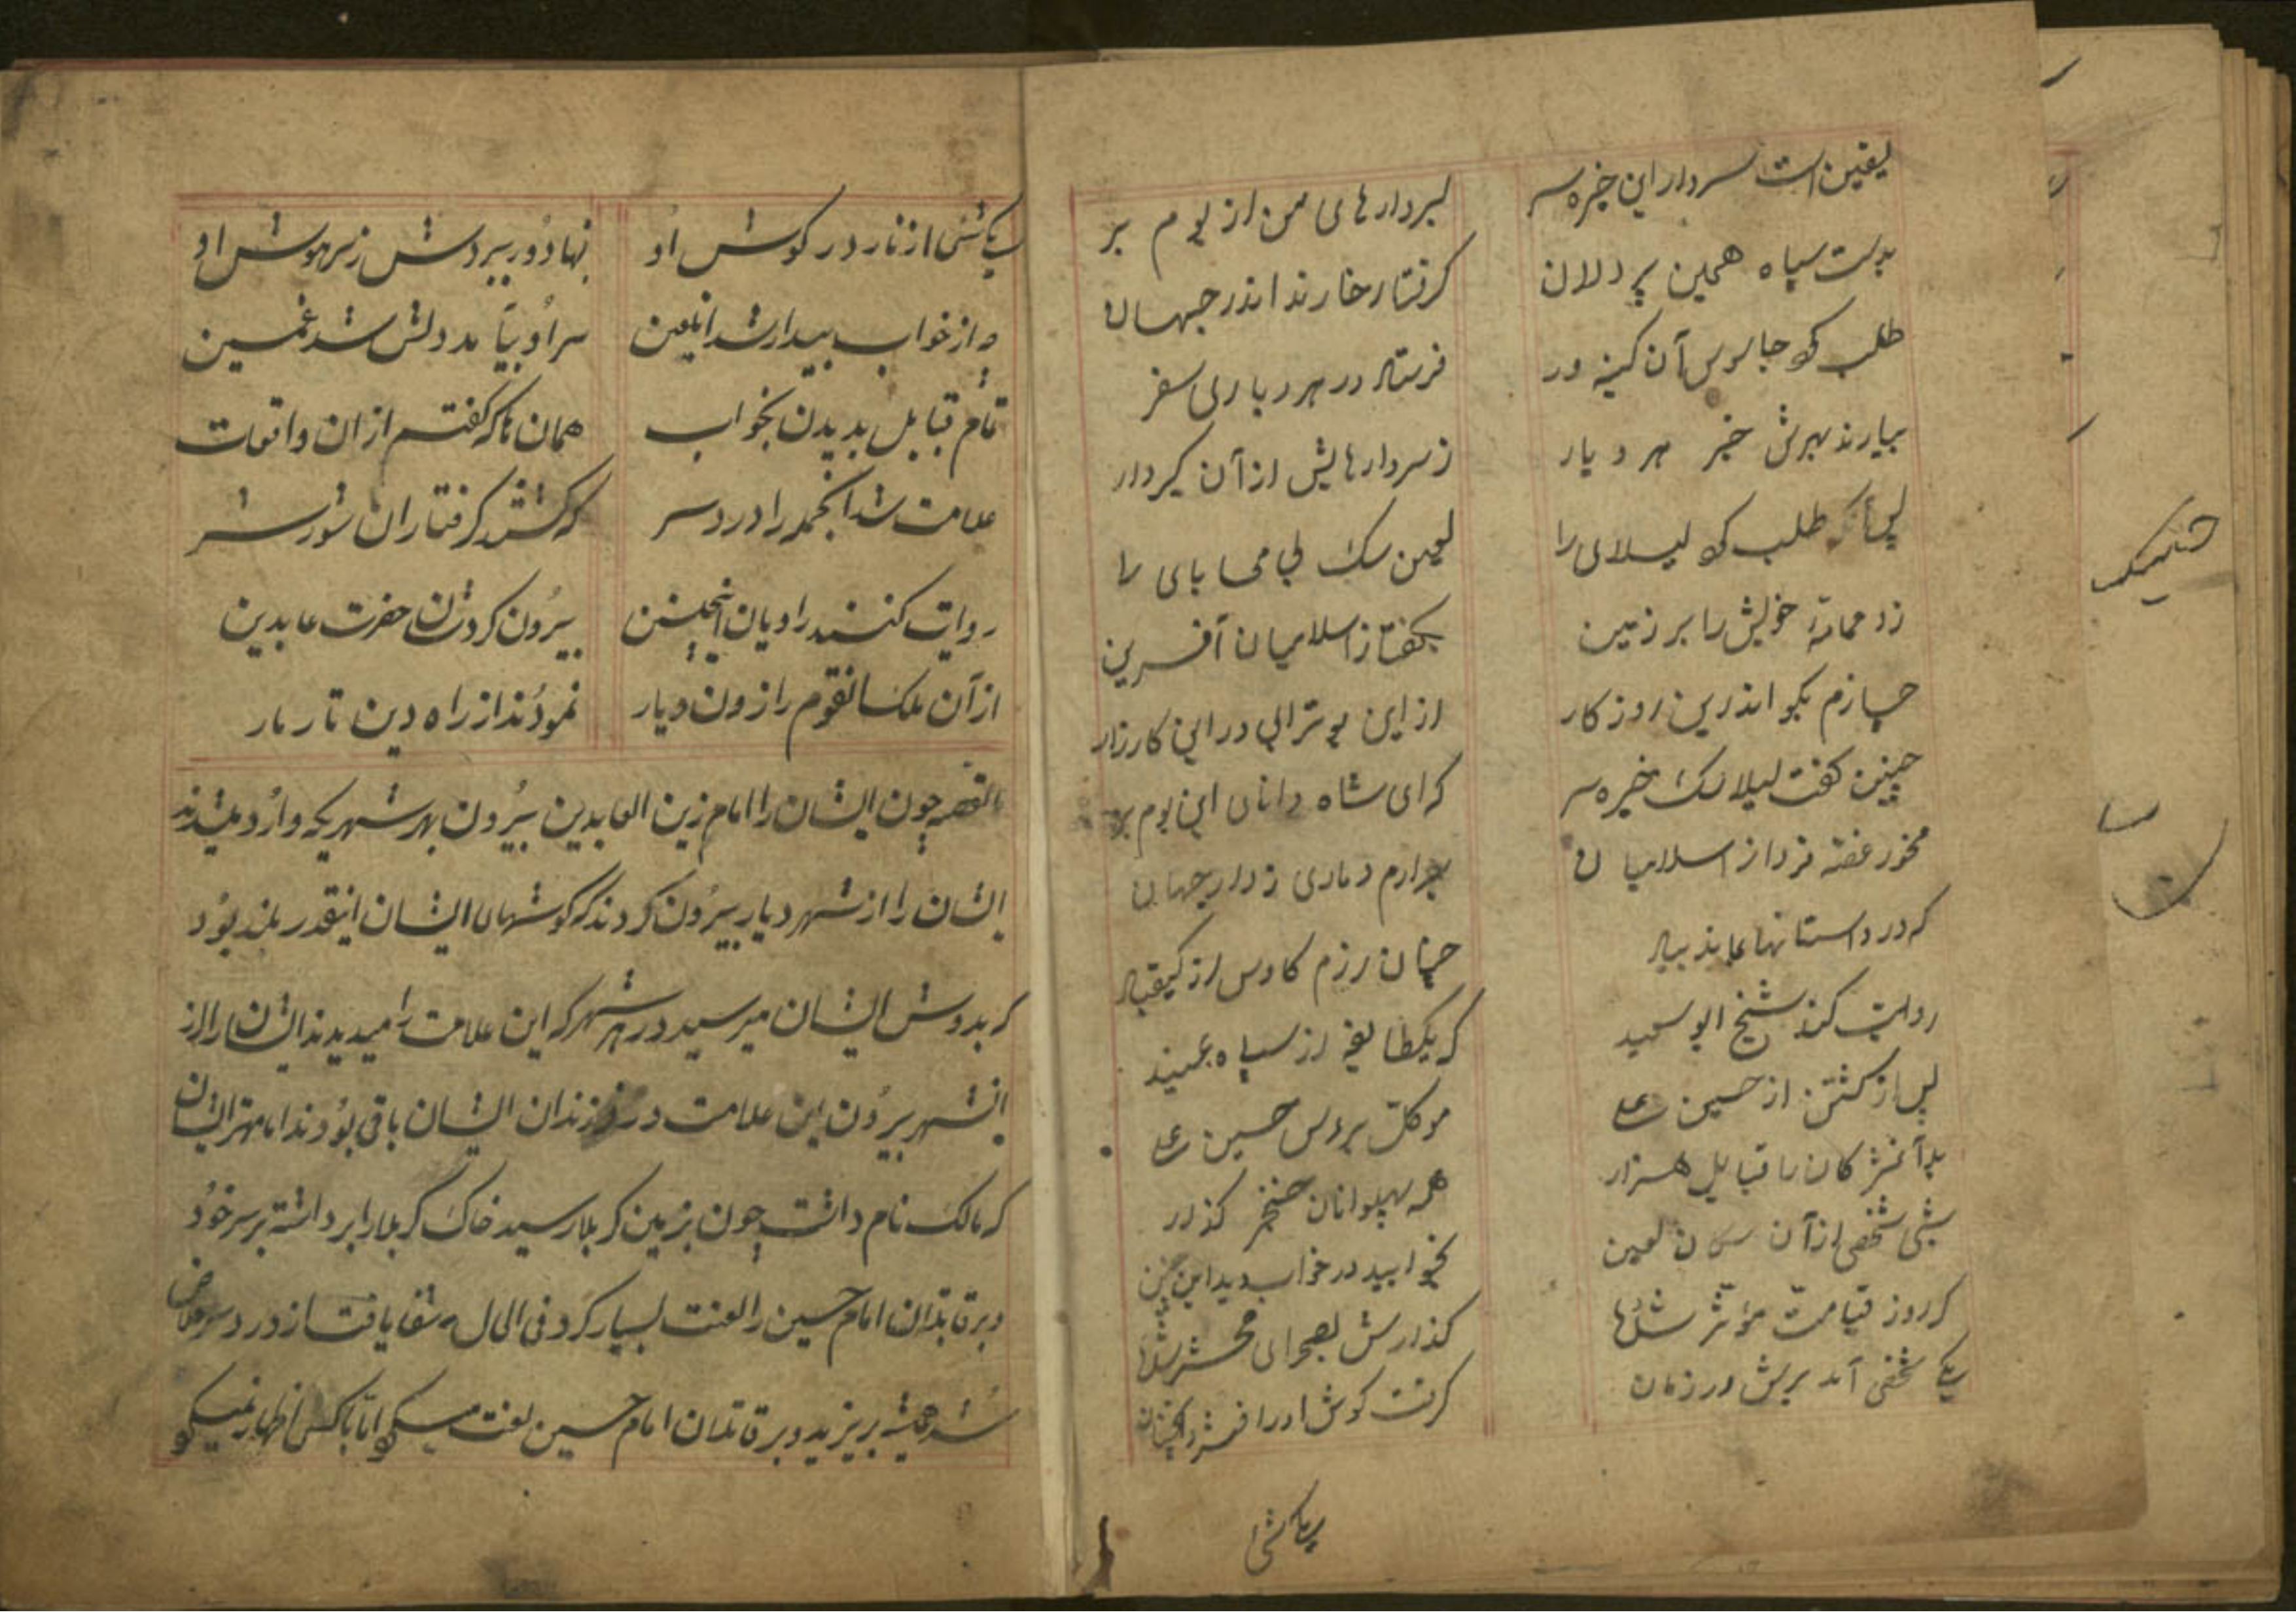 یقین است سردار این خیره سر
بسردارهای من از بوم بر
بدست سپاه همین پر دلان
گرفتار خارند اندر جهان
طلب کو جاسوس آن کینه ور
فرستاد در هر دیاری سفر
بیارند بهرش خبر هر دیار
ز سردارهایش از آن گیردار
پس آنکه طلب کو لیسلای را
لعین سک بی محابای را
زد عمامهٔ خویش را بر زمین
بگفتا ز اسلامیان آفرین
چسازم بگو اندرین روزکار
از این بوترابی در این کارزار
چنین گفت لیلا سک خیره سر
که ای شاه دانای این بوم بر
مخور غصه فردا ز اسلامیان
برآرم دماری ز دار جهان
که در داستانها بماند بیاد
چنان رزم کاوس از کیقباد
روایت کند شیخ ابو سعید
که یکطایفه از سپاه
پس از کشتن از حسین علی
موکل بروس حسین علی
قبایل هزار
همه پهلوانان خنجر گذار
شبی شخصی از آن سکان لعین
بخوابید در خواب دید این
که روز قیامت مؤثر شد
گذارش بصحرای محشر
یکی شخصی آمد برش در زمان
گرفت گوش او را فشرد آنچنان
یکاتشی
یکاتشی از نار در گوش او
نهاد و ببردش ز سر هوش او
چه از خواب بیدار شد آنلعین
سر او بیآمد دلش شد غمین
تمام قبایل بدیدن بخواب
همان تا که گفتم از آن واقعات
علامت شد آنجمله را درد سر
که گشتند گرفتاران شور شر
روایت کنند راویان اینچنین
بیرون کردشان حضرت عابدین
از آن ملک آنقوم را زون دیار
نمودند از راه دین تار مار
القصه چون ایشان را امام زین العابدین بیرون بهر شهریکه وارد میشدند
ایشان را از شهر دیار بیرون کردند که گوشهای ایشان اینقدر بلند بود
که بدوش ایشان میرسید در هر شهر که این علامت را میدیدند ایشان را از
آنشهر بیرون این علامت در فرزندان ایشان باقی بودند اما مهتر ایشان
که مالک نام داشت چون بزمین کربلا رسید خاک کربلا را برداشته بر سر خود
و بر قاتلان امام حسین را لعنت بسیار کرد فی الحال شفا یافت از درد سر
شد همیشه بر یزید و بر قاتلان امام حسین لعنت میکرد اما باکس اظهار نمیکرد